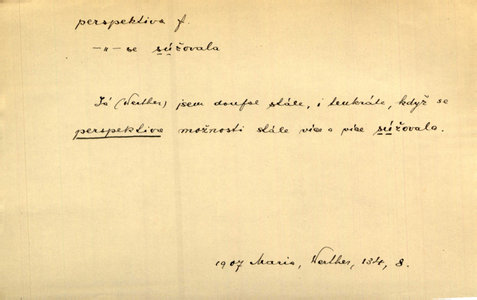 perspektiva f.
—„— se súžovala
Já (Werther) jsem doufal stále, i tenkráte, když se
perspektiva možnosti stále více a více súžovala.
1907 Maria, Werther, 134, 8.